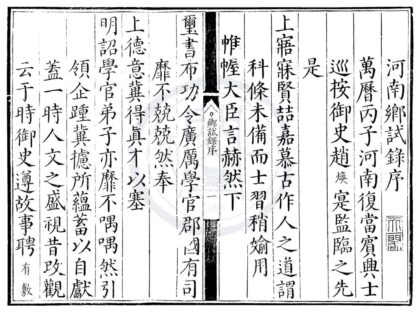 河南鄉試錄序
萬曆丙子河南復當賓興士
巡按御史趙煥寔監臨之先
是
上寤寐賢喆嘉慕古作人之道謂
科條未備而士習稍媮用
帷幄大臣言赫然下
鄉試錄序
璽書布功令廣厲學官郡國有司
靡不兢兢然奉
上德意冀得真才以塞
明詔學官弟子亦靡不喁喁然引
領企踵冀攄所蘊蓄以自獻
蓋一時人文之盛視昔改觀
云于時御史遵故事聘有數